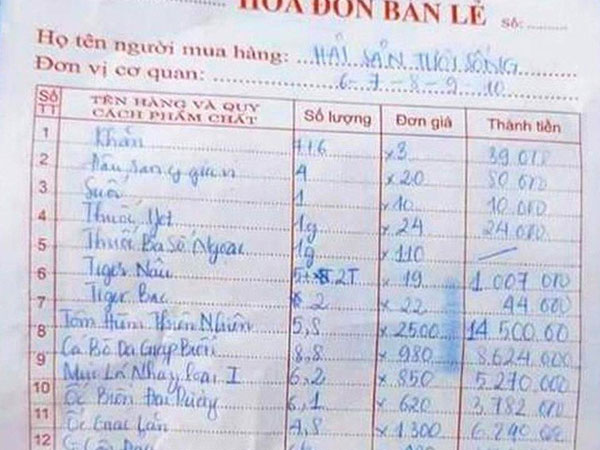 HÓA ĐƠN BÁN LẺ Số:
Họ tên người mua hàng: HẢI SẢN TƯƠI SỐNG
Đơn vị cơ quan: 6-7-8-9-10
Số TT TÊN HÀNG VÀ QUY CÁCH PHẨM CHẤT Số lượng Đơn giá Thành tiền
1 Khăn 7+6 x3 39.000
2 Đậu 4 x20 80.000
3 Suối 1 x10 10.000
4 Thuốc Jet 1g x24 24.000
5 Thuốc Ba Số Ngoại 1g x110
6 Tiger Nâu 2T x19 1.007.000
7 Tiger Bạc 2 x22 44.000
8 Tôm Hùm Thiên Nhiên 5,8 x2500 14.500.00
9 Cá Bò Da Giáp Biển 8,8 x980 8.624.000
Mực Lá Nháy Loại I 6,2 x850 5.270.000
10 Ốc Biển Đại Dương 6,1 x620 3.782.000
11 Ốc Gai Lần 4,8 x1.300 6.240.00
12